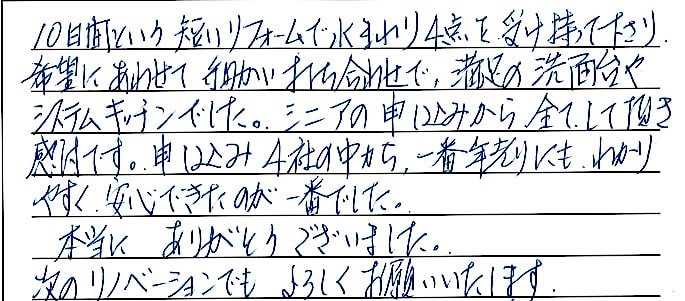 10日間という短いリフォームで水まわり4点を受け持って下さり.
希望にあわせて細かい打ち合わせで、満足の洗面台や
システムキッチンでした。シニアの申し込みから全てして頂き
感謝です。申し込み4社の中から、一番年寄りにもわかり
やすく、安心できたのが一番でした。
本当にありがとうございました。
次のリノベーションでもよろしくお願いいたします.